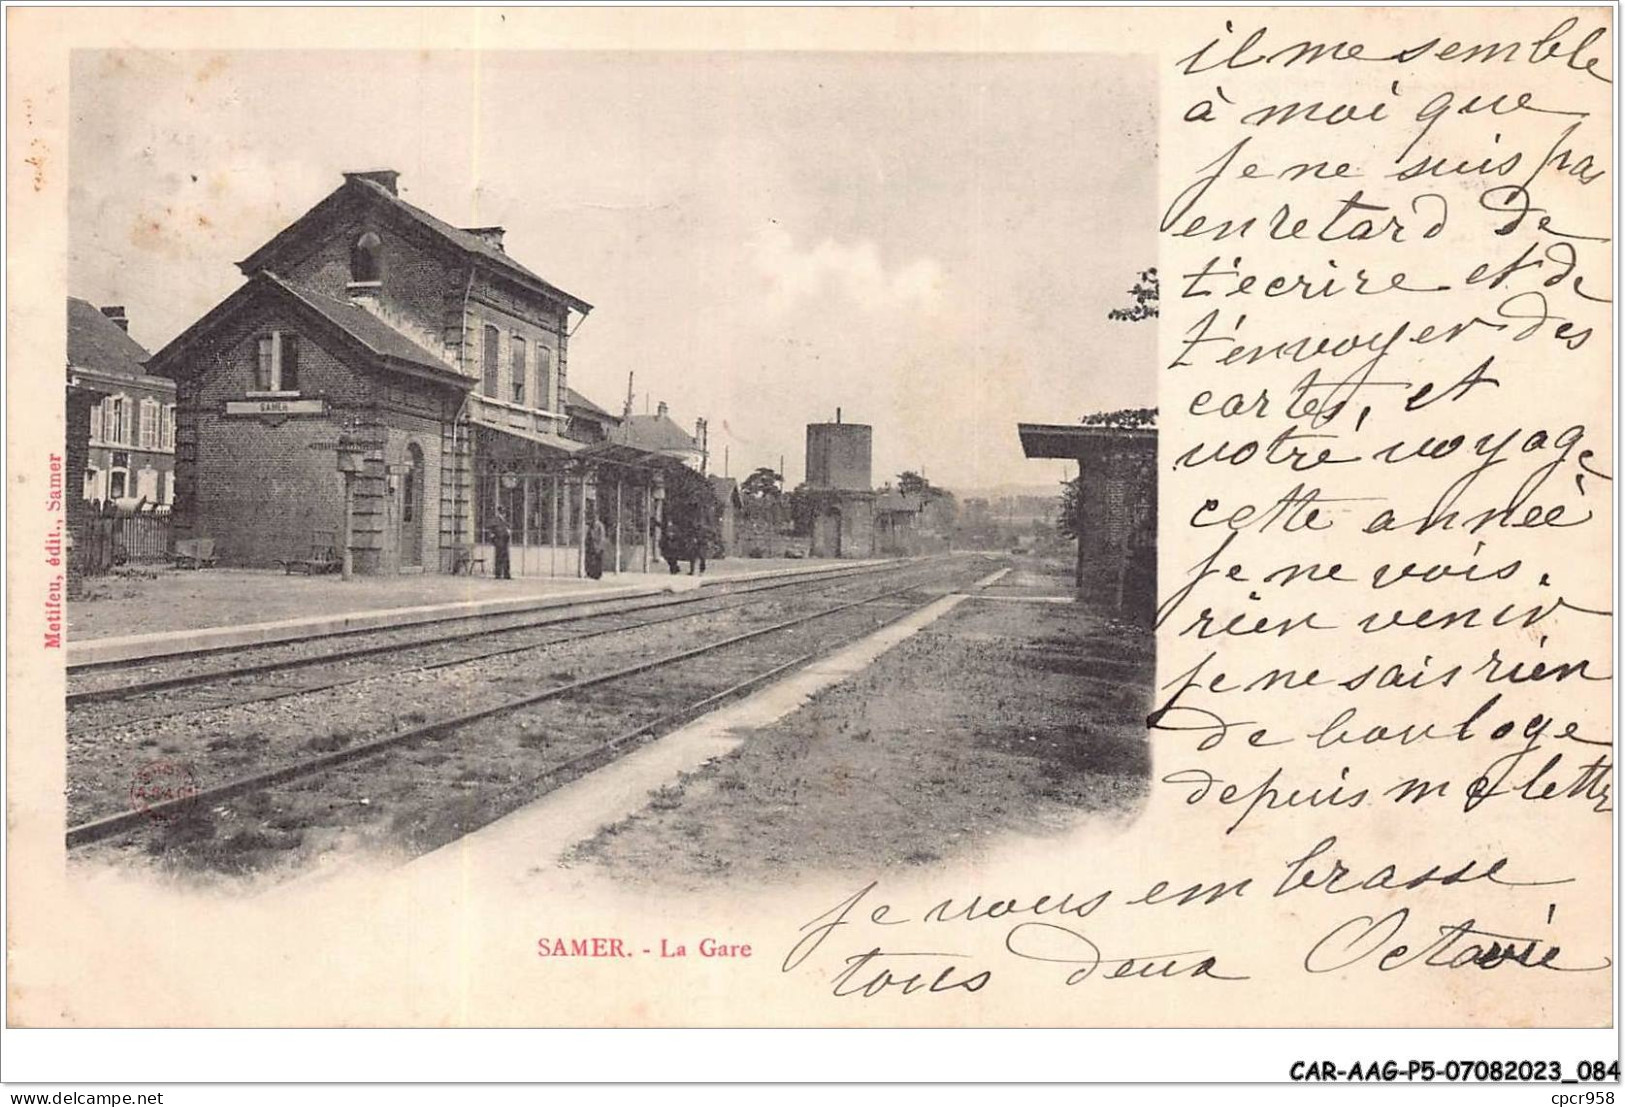 il me semble
à moi que
je ne suis pas
en retard de
t'ecrire et de
t'envoyer des
cartes, et
votre voyage
cette année
je ne vois
rien venir
je ne sais rien
de boulogne
depuis me lettr
je vous embrasse
tous deux Octavie
SAMER
Metifeu, édit., Samer
SAMER. - La Gare
CAR-AAG-P5-07082023_084
delcampe.net
cpcr958